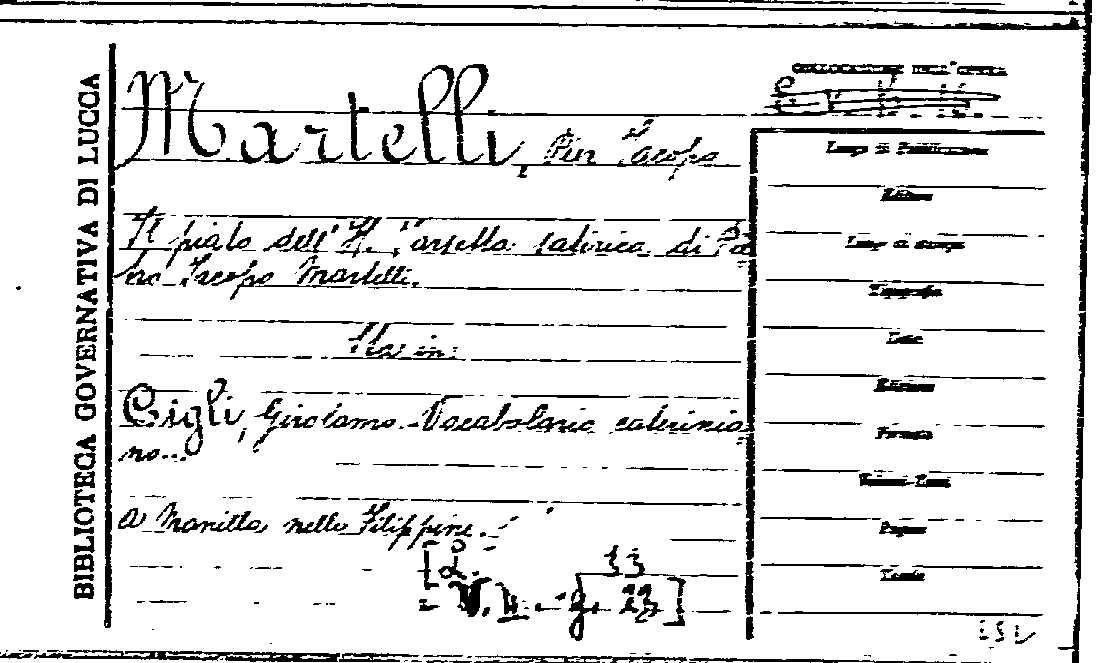 BIBLIOTECA GOVERNATIVA DI LUCCA
COLLOCAZIONE DELL'OPERA
Martelli, Pier Jacopo
Il piato dell'H. Farsetta satirica di Pie=
ro Jacopo Martelli.
Sta in:
Gigli, Girolamo. Vocabolario caterinia=
no...
a Manilla nelle Filippine.
Luogo di Pubblicazione
Editore
Luogo di stampa
Tipografia
Data
Edizione
Formato
Pagine
Tavole